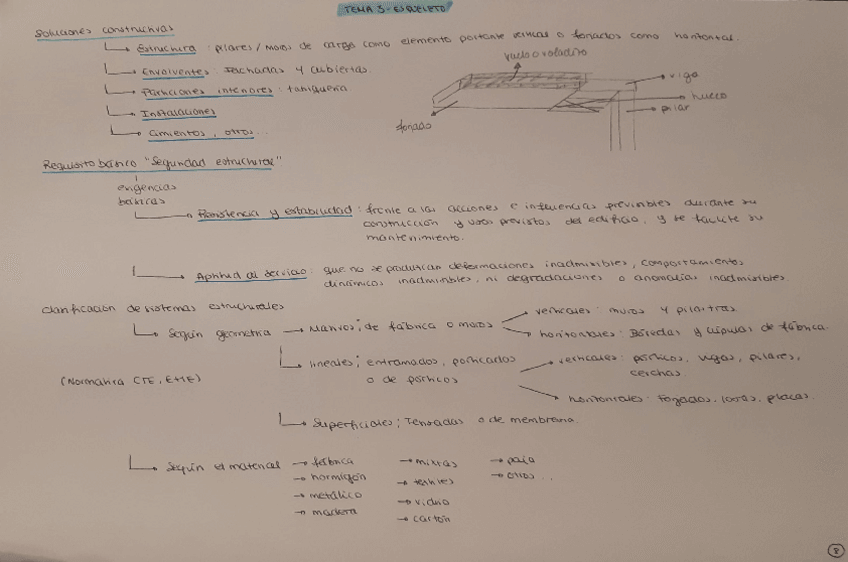 TEMA 3 - ESQUELETO
Soluciones constructivas
Estructura : pilares / muros de carga como elemento portante vertical o forjados como horizontal.
Envolventes : Fachadas y cubiertas.
Particiones interiores : tabiquería
Instalaciones
Cimientos, otros...
vuelo o voladizo
viga
hueco
pilar
forjado
Requisito básico "Seguridad estructural"
exigencias
básicas
Resistencia y estabilidad : frente a las acciones e influencias previsibles durante su
construcción y usos previstos del edificio, y se facilite su
mantenimiento.
Aptitud al servicio : que no se produzcan deformaciones inadmisibles, comportamientos
dinámicos inadmisibles, ni degradaciones o anomalías inadmisibles.
Clasificación de sistemas estructurales
Según geometría → Masivos; de fábrica o muros
verticales : muros y pilastras.
horizontales : Bóvedas y cúpulas de fábrica.
(Normativa CTE, EHE)
lineales; entramados, porticados
o de pórticos
verticales : pórticos, vigas, pilares,
cerchas.
horizontales : forjados, losas, placas.
Superficiales; Tensadas o de membrana.
Según el material → fábrica → mixtas → paja
→ hormigón → textiles → otros...
→ metálico → vidrio
→ madera → cartón
8